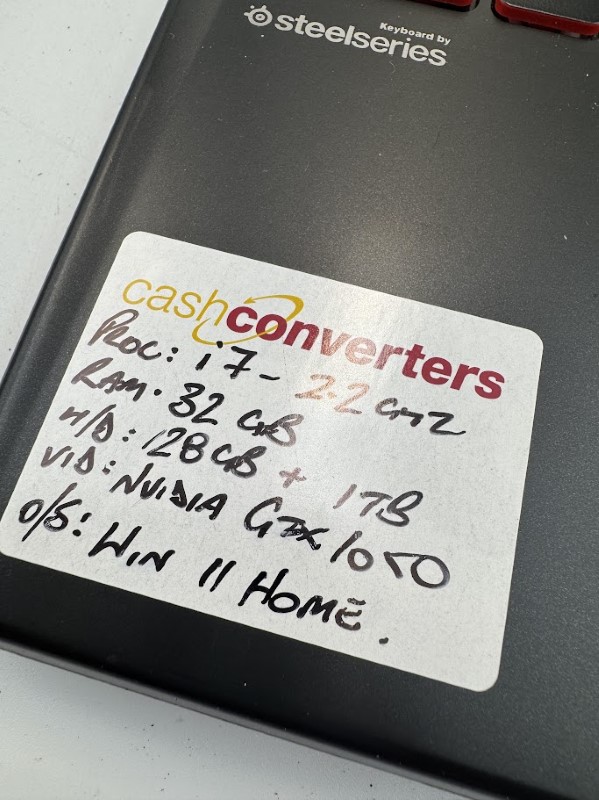 Keyboard by
steelseries
cashconverters
PROC: i7- 2.2 GHZ
RAM. 32 GB
H/D: 128GB + 1TB
VID: NVIDIA GTX 1050
O/S: WIN 11 HOME.